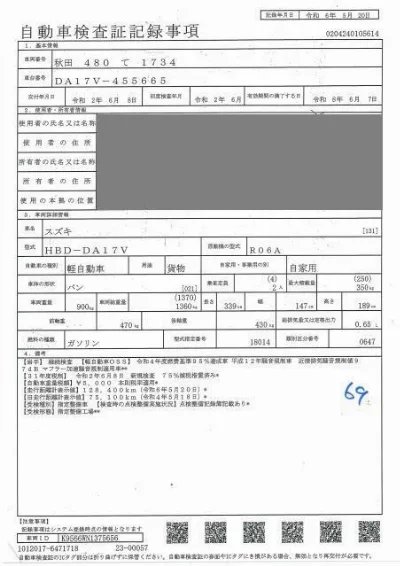 記録年月日 令和 6年 5月 20日
自動車検査証記録事項
0204240105614
1. 基本情報
車両番号 秋田 480 て 1734
車台番号 DA17V-455665
交付年月日 令和 2年 6月 8日 初度検査年月 令和 2年 6月 有効期間の満了する日 令和 8年 6月 7日
2. 使用者・所有者情報
使用者の氏名又は名称
使用者の住所
所有者の氏名又は名称
所有者の住所
使用の本拠の位置
3. 車両詳細情報
車名 スズキ [131]
型式 HBD-DA17V 原動機の型式 R06A
自動車の種別 軽自動車 用途 貨物 自家用・事業用の別 自家用
車体の形状 バン [021] 乗車定員 (4) 2人 最大積載量 (250) 350kg
車両重量 900kg 車両総重量 (1370) 1360kg 長さ 339cm 幅 147cm 高さ 189cm
前軸重 470kg 後軸重 430kg 総排気量又は定格出力 0.65L
燃料の種類 ガソリン 型式指定番号 18014 類別区分番号 0647
4. 備考
[岩手] 継続検査 [軽自動車OSS] 令和4年度燃費基準95%達成車 平成12年騒音規制車 近接排気騒音規制値9
7dB マフラー加速騒音規制適用車**
[31年度税制] 令和2年6月8日 新規検査 75%減税措置済み*
[自動車重量税額] ¥5,000 本則税率適用*
[走行距離計表示値] 128,400km (令和6年5月20日)*
[旧走行距離計表示値] 75,100km (令和4年5月18日)*
[受検種別] 指定整備車 [検査時の点検整備実施状況] 点検整備記録簿記載あり*
[受検形態] 指定整備工場**
69
[注意事項]
記録事項はシステム登録時点の情報となります
車両ID K9566WN1375656
1012017-6471718 23-00057
自動車検査証のICタグ部分は折り曲げずに保管ください。自動車検査証の券面やICタグにき損がある場合、無効となり再交付が必要です。